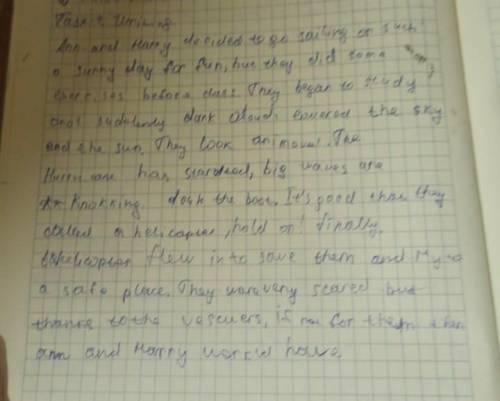 Task: Writing
Ann and Harry decided to go sailing on such
a sunny day for fun, but they did some
exercises before class. They began to study
and suddenly dark clouds covered the sky
and the sun. They look an. The
Hurricane has started, big waves are
knokking down the boat. It's good that they
called a helicopter, hold on! finally,
helicopter flew in to save them and fly to
a safe place. They were very scared but
thanks to the rescuers, if not for them then
ann and Harry would have.